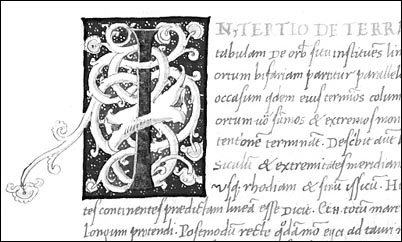 IN TERTIO DE TERRA
tabulam DE orb situ instituēs lin
orum bifariam partitur parallel
occasum qdem eius terminos colum
orum uō sūmos & extremos mon
tentione terminat. Describit aut
Siculū & extremitates meridian
Vsq; rhodiam & sinū issicū. H
tes continentes prædictam lineā esse Dicit. totū mare
Longum protendi. recto qdāmo ad tauri